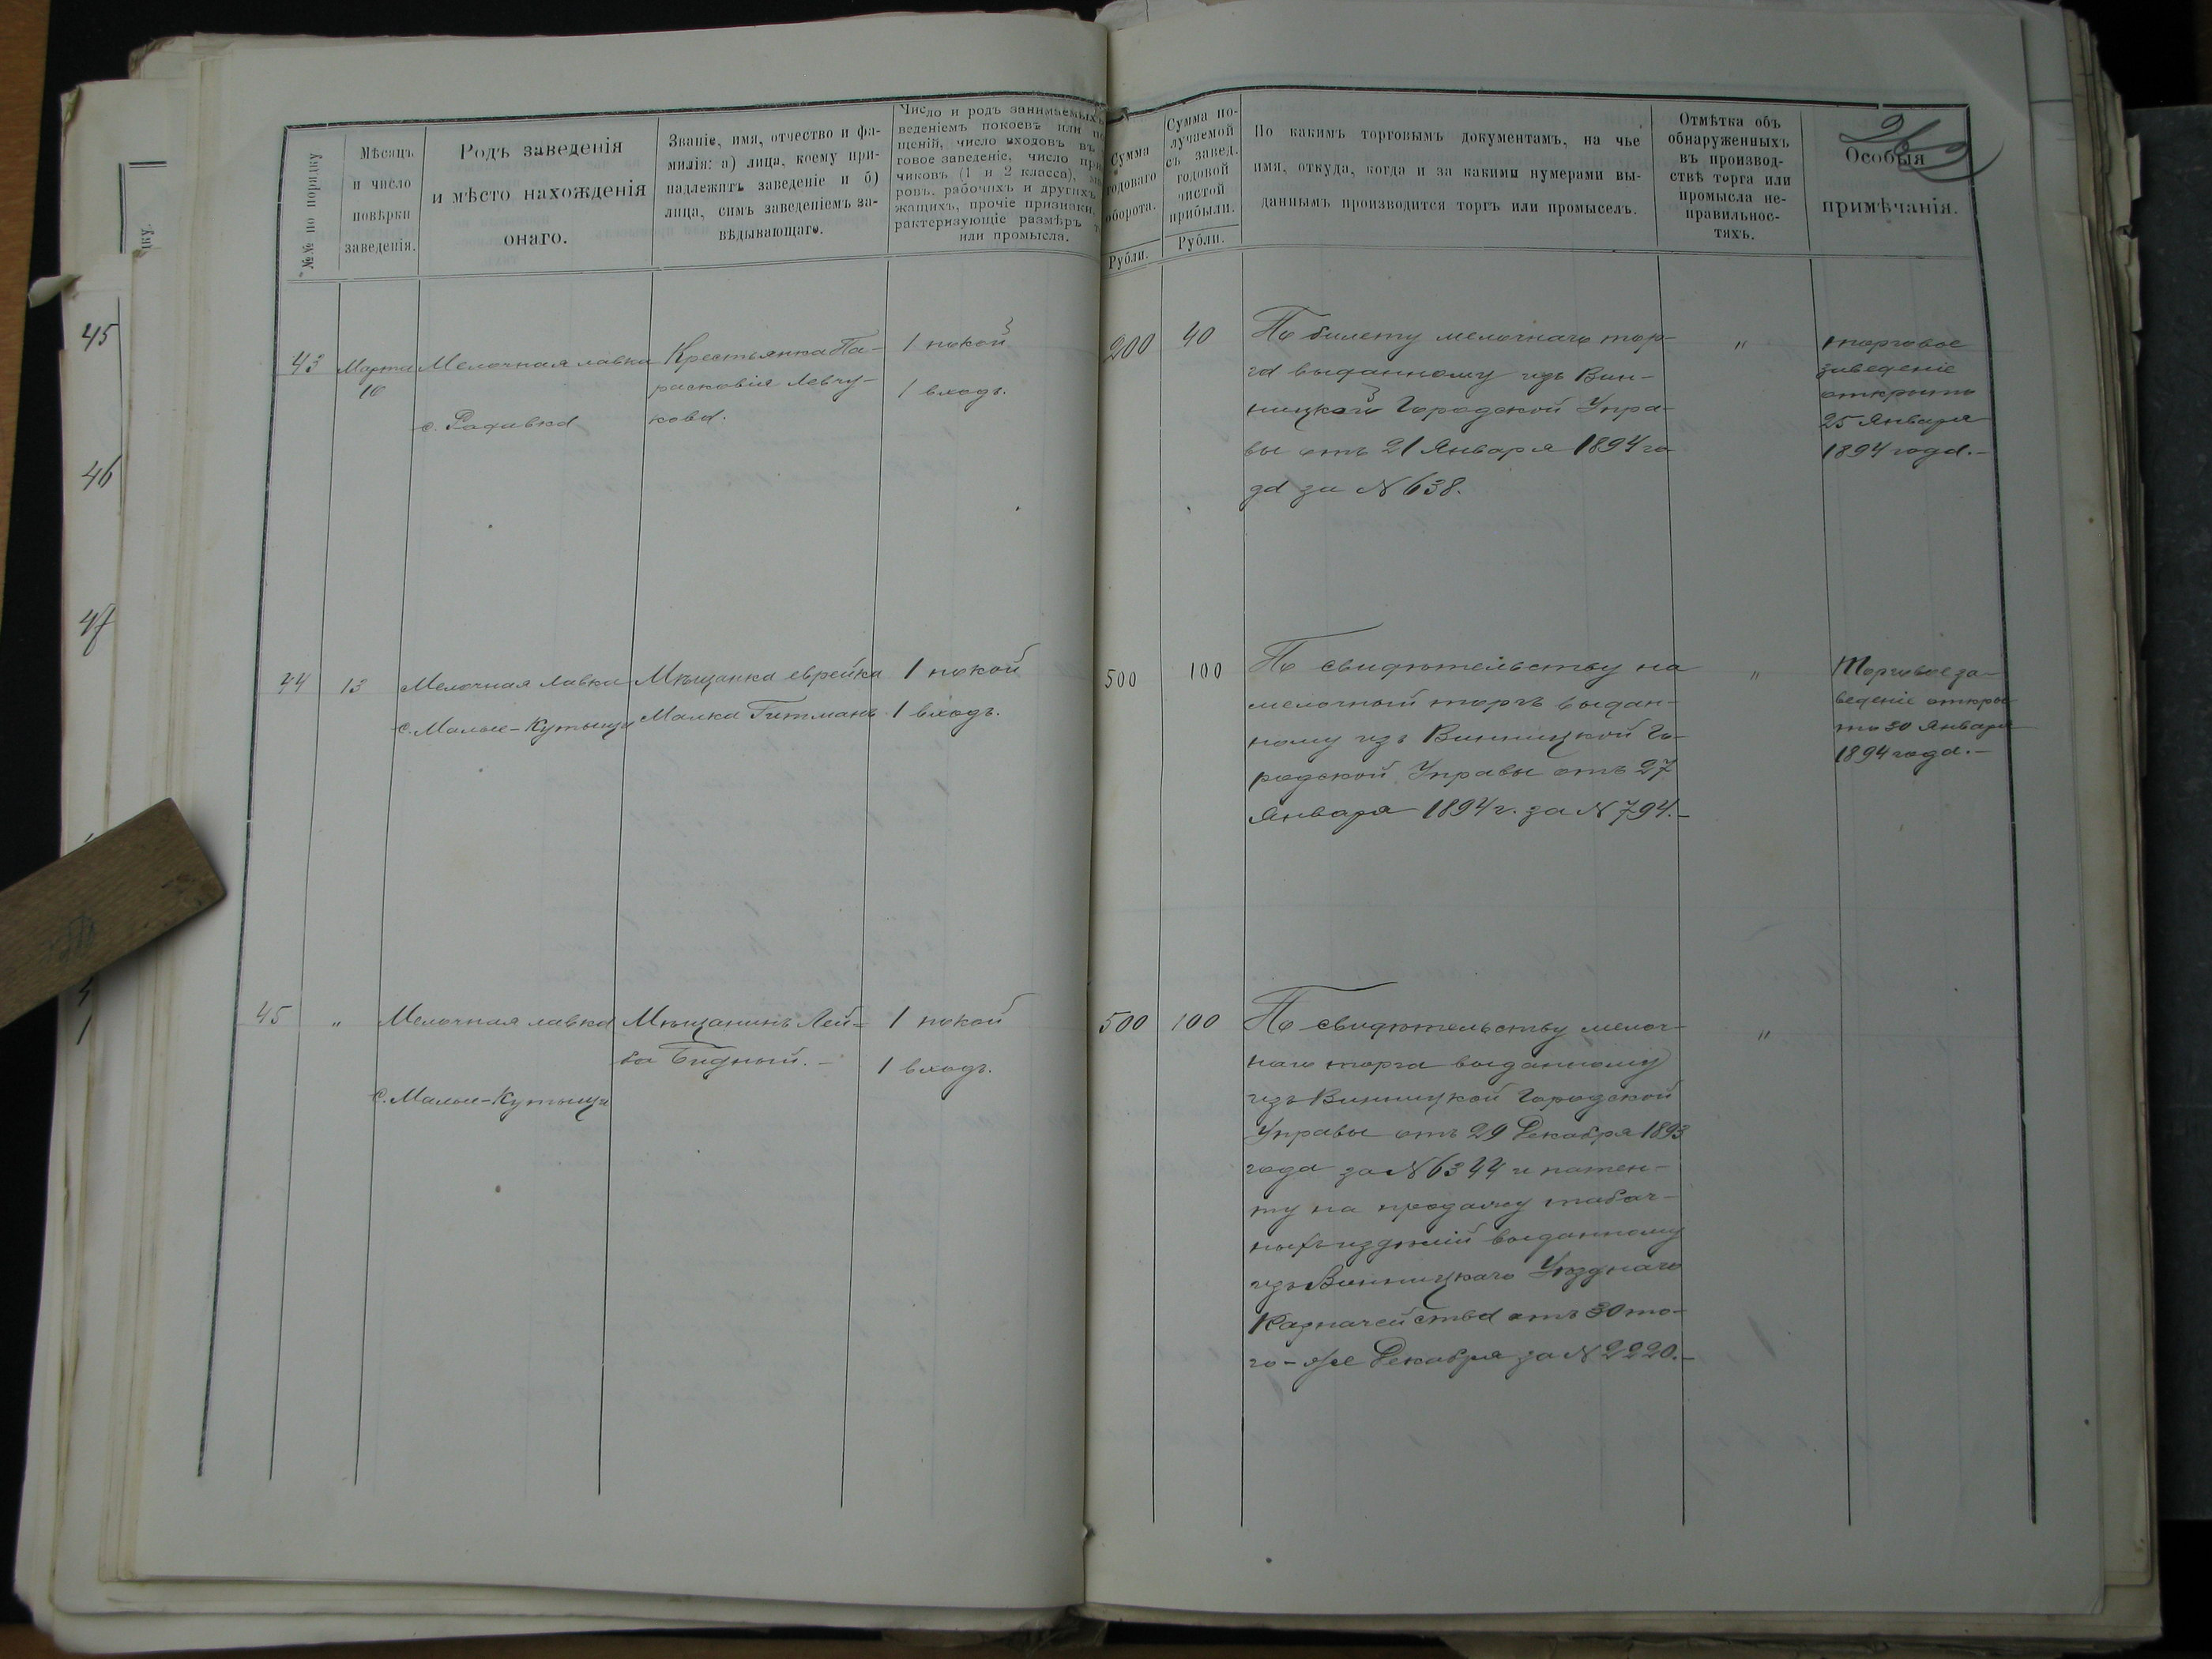 №№ по порядку
Мѣсяцъ
и число
повѣрки
заведенія.
Родъ заведенія
и мѣсто нахожденія
онаго.
Званіе, имя, отчество и фа-
милія: а) лица, коему при-
надлежитъ заведеніе и б)
лица, симъ заведеніемъ за-
вѣдывающаго.
Число и родъ занимаемыхъ
веденіемъ покоевъ или
щеній, число входовъ въ
говое заведеніе, число
чиковъ (1 и 2 класса),
ровъ, рабочихъ и другихъ
жащихъ, прочіе признаки,
рактеризующіе размѣръ
или промысла.
Сумма
годоваго
оборота.
Рубли.
Сумма по-
лучаемой
съ завед.
годовой
чистой
прибыли.
Рубли.
По какимъ торговымъ документамъ, на чье
имя, откуда, когда и за какими нумерами вы-
даннымъ производится торгъ или промыселъ.
Отмѣтка объ
обнаруженныхъ
въ производ-
ствѣ торга или
промысла не-
правильнос-
тяхъ.
Особыя
примѣчанія.
45
46
47
43
Марта
10
Мелочная лавка
с. Радавка
Крестьянка Па-
расковія Левчу-
кова.
1 покой
1 входъ.
200
40
По билету мелочнаго тор-
га выданному изъ Вин-
ницкой Городской Упра-
вы отъ 21 Января 1894 го
да за N 638.
"
торговое
заведеніе
открыто
25 Января
1894 года.-
44
13
Мелочная лавка
с. Малые-Кутыща
Мѣщанка еврейка
Малка Гитманъ
1 покой
1 входъ.
500
100
По свидѣтельству на
мелочный торгъ выдан-
ному изъ Винницкой Го-
родской Управы отъ 27
Января 1894 г. за N 794.-
"
Торговое за-
веденіе откры-
то 30 Января
1894 года.-
45
"
Мелочная лавка
с. Малые-Кутыща
Мѣщанинъ Лей-
ба Бидный.-
1 покой
1 входъ.
500
100
По свидѣтельству мелоч-
наго торга выданному
изъ Винницкой Городской
Управы отъ 29 Декабря 1893
года за N 6344 и патен-
ту на продажу табач-
ныхъ издѣлій выданному
изъ Винницкаго Уѣзднаго
Казначейства отъ 30 то-
го-же Декабря за N 2220.-
"